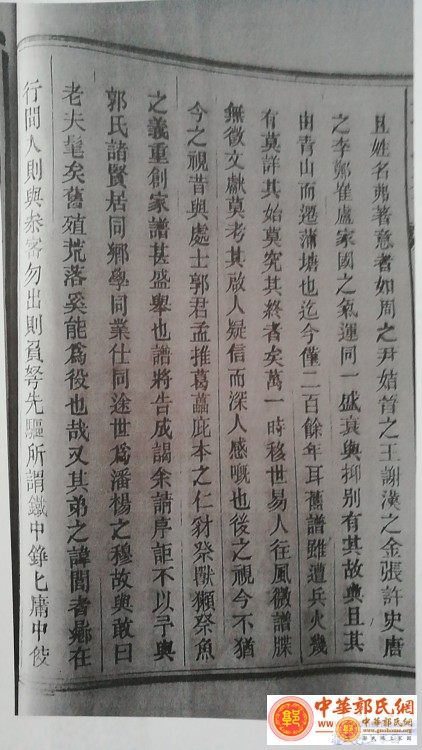 且姓名弗著意者如周之尹姞晉之王謝漢之金張許史唐
之李鄭崔盧家國之氣運同一盛衰與抑別有其故與且其
由青山而遷蒲塘也迄今僅二百餘年耳舊譜雖遭兵火幾
有莫詳其始莫究其終者矣萬一時移世易人往風微譜牒
無徵文獻莫考其啟人疑信而深人感嘅也後之視今不猶
今之視昔與處士郭君孟推葛藟庇本之仁豺祭獸獺祭魚
之義重創家譜甚盛舉也譜將告成謁余請序詎不以予與
郭氏諸賢居同鄉學同業仕同途世爲潘楊之穆故與敢曰
老夫髦矣舊殖荒落奚能爲役也哉又其弟之諱聞者鄉在
行間入則與參密勿出則負弩先驅所謂鐵中錚匕庸中佼
中華郭氏網
中華郭氏網
www.guohome.org